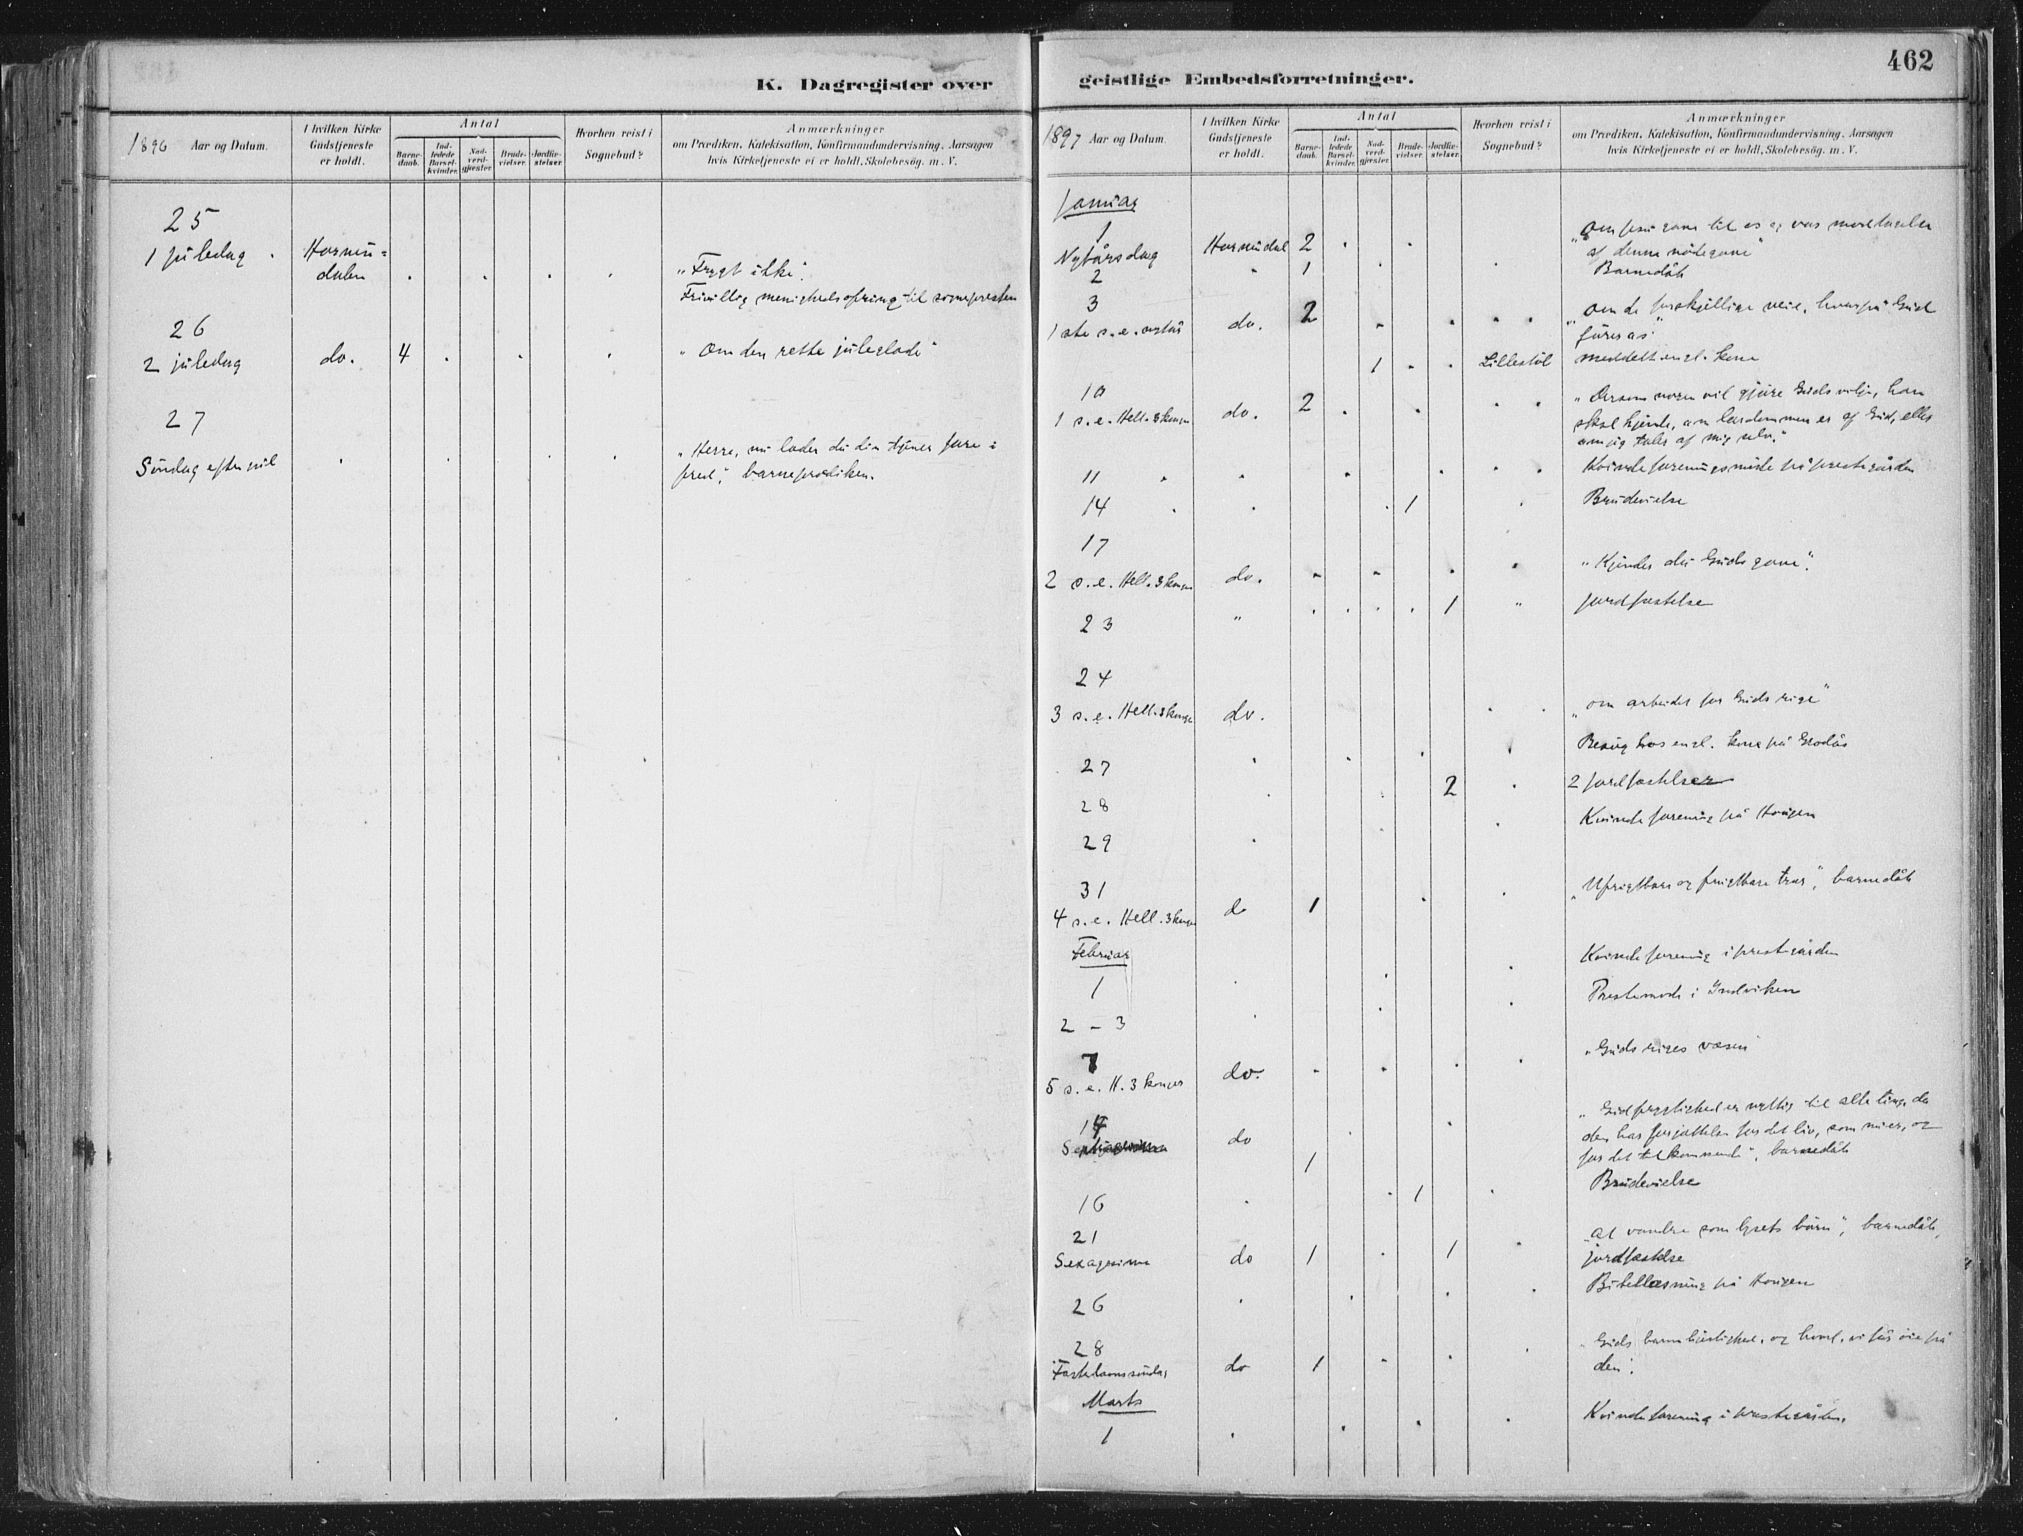 K. Dagregister over
1896 Aar og Datum.
I hvilken Kirke Gudstjeneste er holdt.
Antal
Barne-daab.
Ind-ledede Barsel-kvinder.
Nad-verd-gjester.
Brude-vielser.
Jordfæ-stelser.
Hvorhen reist i Sognebud?
Anmærkninger
om Prædiken, Katekisation, Konfirmandundervisning, Aarsagen
hvis Kirketjeneste ei er holdt, Skolebesög, m. V.
25
1 juledag Hornin=
dalen "Frygt ikke".
Frivillig menighedsofring til sognepresten
26
2 juledag do. 4 "Om den rette juleglæde"
27
Søndag efter jul "Herre, nu lader du din tjener fare i
fred", barneprædiken.
geistlige Embedsforretninger.
462
1897 Aar og Datum
I hvilken Kirke Gudstjeneste er holdt.
Antal
Barne-daab.
Ind-ledede Barsel-kvinder.
Nad-verd-gjester.
Brude-vielser.
Jordfæ-stelser.
Hvorhen reist i Sognebud?
Anmærkninger
om Prædiken, Katekisation, Konfirmandundervisning, Aarsagen
hvis Kirketjeneste ei er holdt, Skolebesög, m. V.
Januar
1
Nytårsdag Hornindal 2 "Om gave til os og vor modtagelse
af denne nådegave"
2 " 1 Barnedåb
3
1ste s.e. nytår do. 2 "Om de forskjellige veie, hvorpå Gud
fører os"
1 Lillestöl meddelt kone
10
1 s.e. Hell. 3 konger do. 2 "Dersom nogen vil gjöre Guds vilje, han
skal kjende, om lærdommen er af Gud, eller
om jeg taler af mig selv."
11 Kvindeforeningsmöde på prestegården
14 1 Brudevielse
17
2 s.e. Hell. 3 konger do. "Kjendte du Guds gave".
23 " 1 " Jordfæstelse
24
3 s.e. Hell. 3 konger do. "om arbeidet for Guds rige"
27 Besög hos kone på Grodås
28 2 2 jordfæstelser
29 Kvindeforening på Haugen
31
4 s.e. Hell. 3 konger do 1 "Ufrugtbare og frugtbare trær", barnedåb
Februar
1 Kvindeforening i prestegården
2 - 3 Prestemöde i Indviken
7
5 s.e. H. 3 konger do. "Guds riges væsen"
14
Septuagesima do 1 "Gudfrygtighed er nyttig til alle ting, da
den har forjættelse for det liv, som nu er, og
for det tilkommende", barnedåb
16 1 Brudevielse
21
Sexagesima do 1 1 "At vandre som lysets börn", barnedåb,
jordfæstelse
26 Bibellæsning på Haugen
28
Fastelavnssöndag do 1 "Guds barmhjertighed, og hvad vi får öie på
den".
Marts
1 Kvindeforening i prestegården.